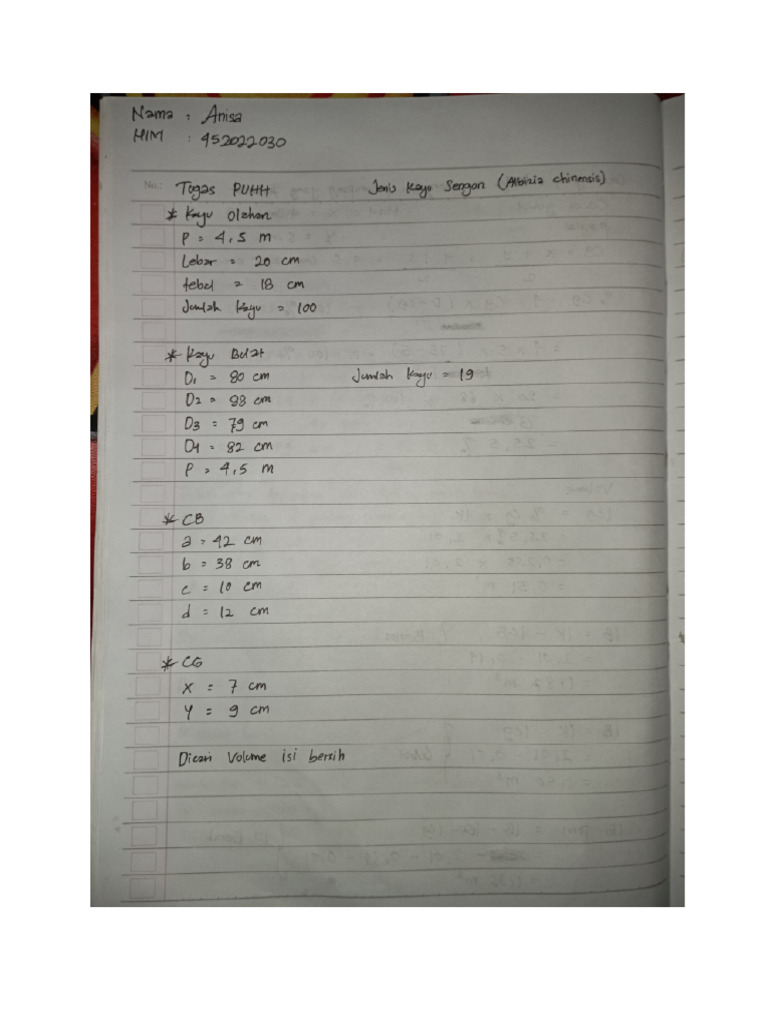 Nama : Anisa
NIM : 452022030
No.: Tugas PUHH Jenis Kayu Sengon (Albizia chinensis)
* Kayu Olahan
P = 4,5 m
Lebar = 20 cm
tebal = 18 cm
Jumlah Kayu = 100
* Kayu Bulat
D1 = 80 cm Jumlah Kayu = 19
D2 = 88 cm
D3 = 79 cm
D4 = 82 cm
P = 4,5 m
* CB
a = 42 cm
b = 38 cm
c = 10 cm
d = 12 cm
* CG
X = 7 cm
Y = 9 cm
Dicari Volume isi bersih